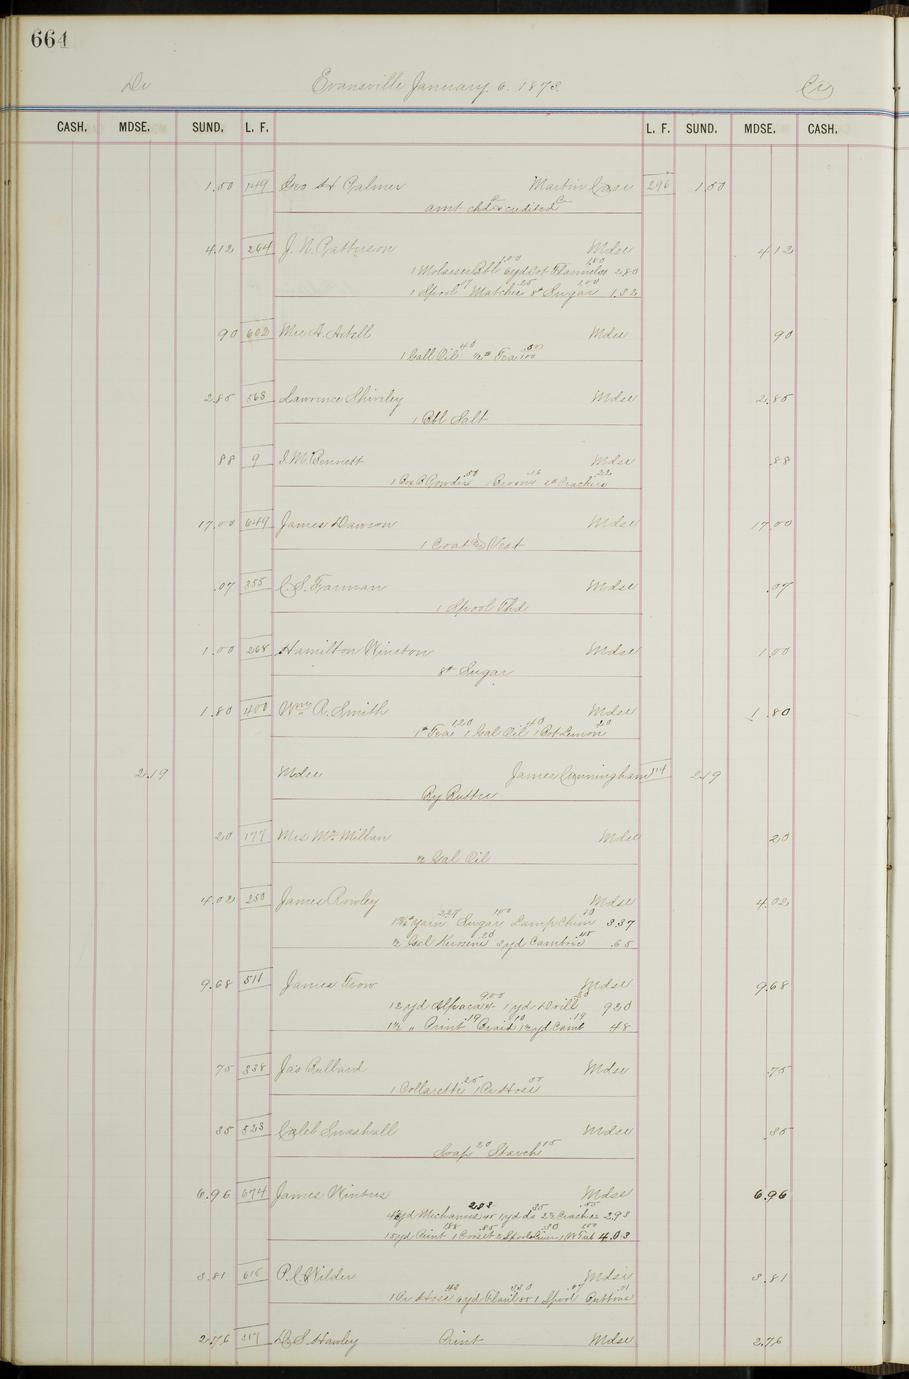 664
Dr Evansville January 6. 1873 Cr
CASH. MDSE. SUND. L. F. L. F. SUND. MDSE. CASH.
1.50 149 Geo H Palmer Martin Case 296 1.50
amt chd & credited
4.12 264 J. N. Patterson Mdse 4.12
1 Molasses Bbl 6 yd Cot Flannel 280 2.80
1 Spool Matches 25 8# Sugar 100 1.32
90 602 Mrs A. Axtell Mdse 90
1 Gall Oil 40 ½# Tea 100
2.85 563 Lawrence Shively Mdse 2.85
1 Bbl Salt
88 9 J. M. Bennett Mdse .88
1 Box B Powder 50 1 Broom Crackers 22
17.00 649 James Dawson Mdse 17.00
1 Coat & Vest
.07 355 C. S. Farman Mdse .07
1 Spool Thd
1.00 268 Hamilton Winston Mdse 1.00
8# Sugar
1.80 400 Wm R. Smith Mdse 1.80
1# Tea 120 1 Gal Oil 40 1 Bot Lemon 20
2.19 Mdse James Cunningham 314 2.19
By Butter
20 177 Mrs McMillan Mdse 20
½ Gal Oil
4.02 250 James Rowley Mdse 4.02
Yarn 227 Sugar 100 Lamp Chim 10 3.37
½ Gal Kerosene 20 3 yd Cambric 45 .65
9.68 511 James Trow Mdse 9.68
12 yd Alpaca 900 1 yd Drill 20 9 20
1½ " Print 19 Braid 10 1½ yd Camb 19 48
75 338 Jas Bullard Mdse .75
1 Collarette 25 1 Pr Hose 50
35 523 Caleb Snashall Mdse .35
Soap 20 Starch 15
6.96 674 James Winters Mdse 6.96
yd 203 1 yd do 35 Crackers 2.93
15 yd Print 188 1 Corset 85 Spools 30 1 100 4.03
3.81 616 P. C. Wilder Mdse 3.81
1 Pr Hose 6 yd Flanl 330 1 Spool 07 Buttons
2.76 317 D. S. Hawley Print Mdse 2.76